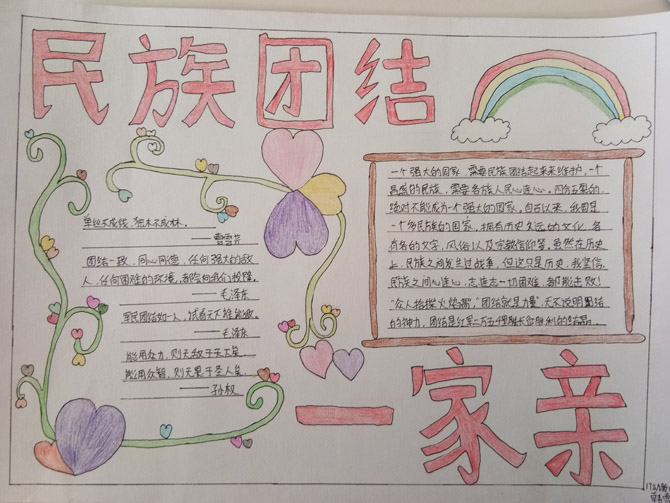 民族团结
单丝不成线,独木不成林。
团结一致,同心同德,任何强大的敌
人,任何困难的环境,都会向我们投降。
——毛泽东
军民团结如一人,试看天下谁能敌。
——毛泽东
能用众力,则无敌于天下矣
能用众智,则无畏于圣人矣
——孙权
一个强大的国家,需要民族团结起来来维护,一个
昌盛的民族,需要各族人民心连心。四分五裂的
绝对不能成为一个强大的国家,自古以来,我国是
一个多民族的国家,拥有历史久远的文化,各
有各的文字,风俗以及宗教信仰等。虽然在历史
上,民族之间发生过战争,但这只是历史,我坚信,
民族之间心连心,志连志一切困难,都能击败!
"众人拾柴火焰高","团结就是力量"无不说明团结
的神力,团结是红军二万五千里长征胜利的结晶。
一家亲